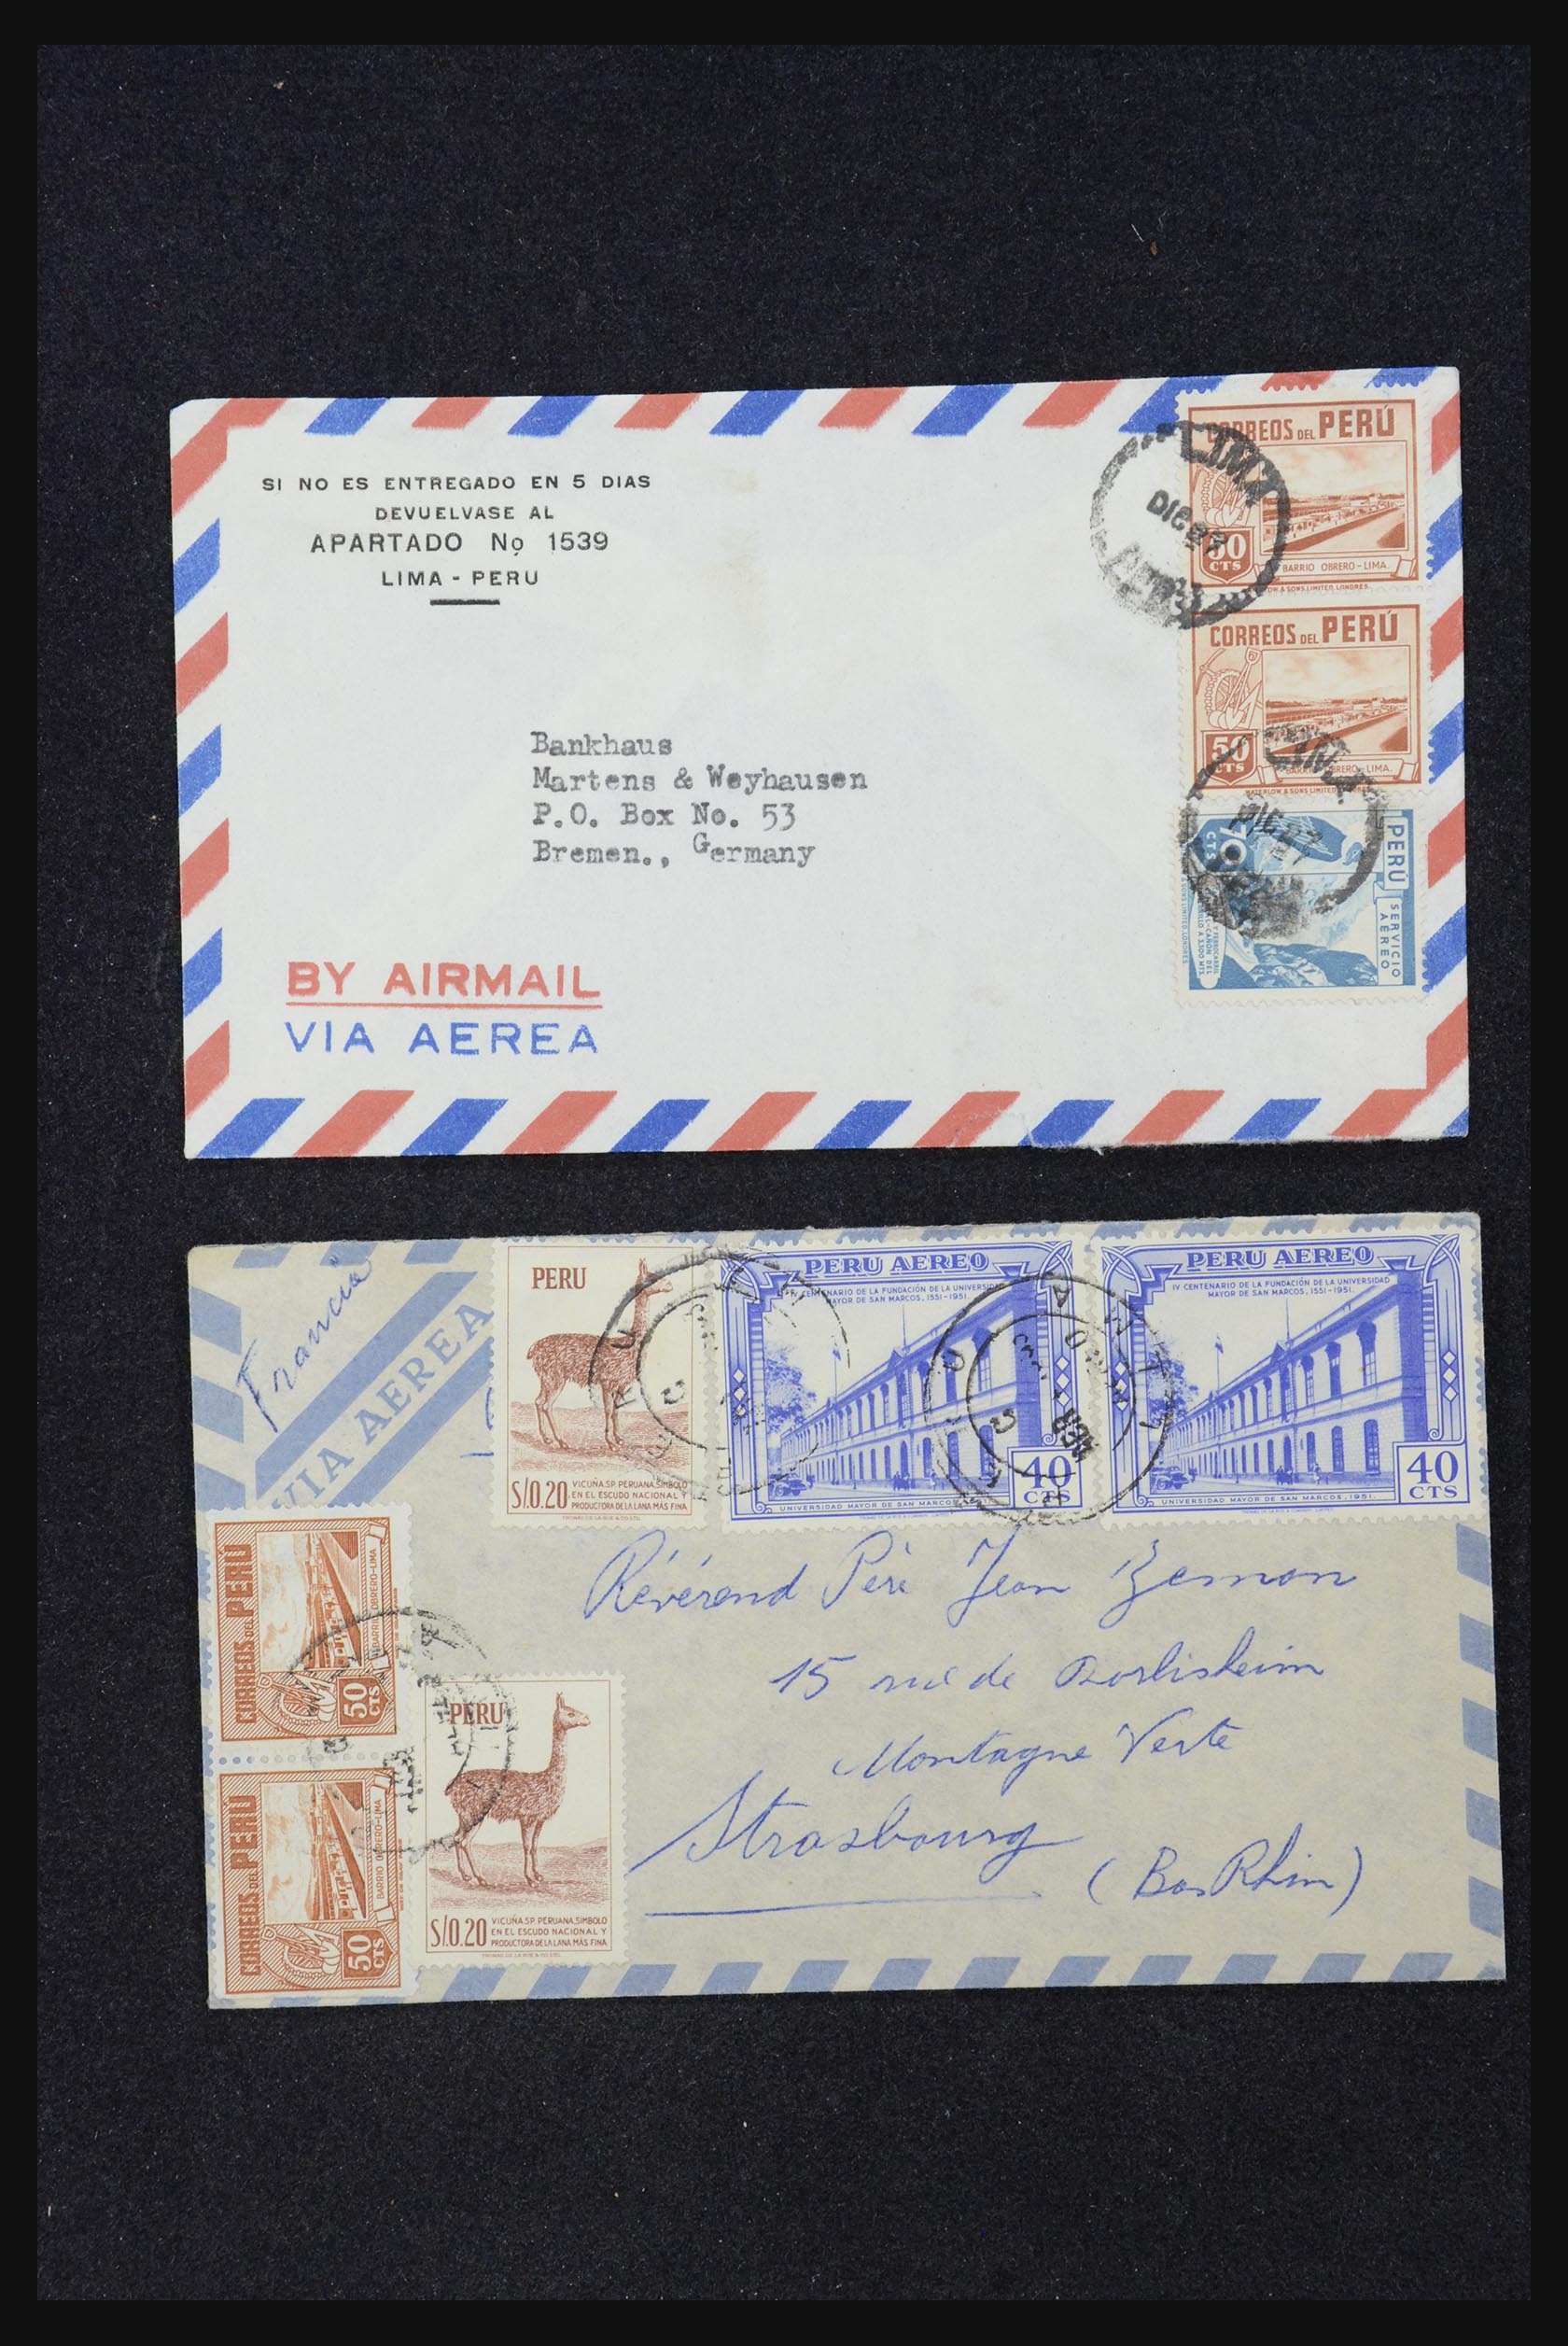 SI NO ES ENTREGADO EN 5 DIAS
DEVUELVASE AL
APARTADO Nọ 1539
LIMA - PERU
Bankhaus
Martens & Weyhausen
P.O. Box No. 53
Bremen., Germany
BY AIRMAIL
VIA AEREA
CORREOS DEL PERÚ
50
CTS
BARRIO OBRERO-LIMA.
LIMA
DIC
CORREOS DEL PERÚ
50
CTS
BARRIO OBRERO-LIMA.
WATERLOW & SONS LIMITED, LONDRES
LIMA
PERÚ
SERVICIO
AÉREO
70
CTS
Francia
VIA AEREA
PERU
S/.0.20
VICUÑA SP. PERUANA, SIMBOLO
EN EL ESCUDO NACIONAL Y
PRODUCTORA DE LA LANA MÁS FINA
PERU AEREO
IV CENTENARIO DE LA FUNDACIÓN DE LA UNIVERSIDAD
MAYOR DE SAN MARCOS, 1551-1951.
40
CTS
UNIVERSIDAD MAYOR DE SAN MARCOS
PERU AEREO
IV CENTENARIO DE LA FUNDACIÓN DE LA UNIVERSIDAD
MAYOR DE SAN MARCOS, 1551-1951.
40
CTS
UNIVERSIDAD MAYOR DE SAN MARCOS, 1951.
CORREOS DEL PERÚ
50
CTS
BARRIO OBRERO-LIMA
CORREOS DEL PERÚ
50
CTS
BARRIO OBRERO-LIMA
PERU
S/.0.20
VICUÑA SP. PERUANA, SIMBOLO
EN EL ESCUDO NACIONAL Y
PRODUCTORA DE LA LANA MÁS FINA
Révérend Père Jean Zemon
15 rue de Dorlisheim
Montagne Verte
Strasbourg
(Bas Rhin)